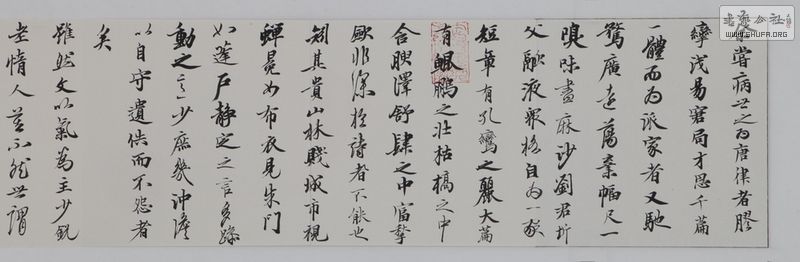 嘗病世之為唐律者膠
攣浅易窘局才思千篇
一體而為派家者又馳
騖廣遠蕩棄幅尺一
嗅味盡麻沙劉君圻
父融液衆格自為一家
短章有孔鸞之麗大篇
有鯤鵬之壯枯槁之中
含腴澤舒肆之中富揫
歛非深於詩者不能也
矧其貴山林賤城市視
蟬冕如布衣見朱門
如蓬戶静定之言多躁
動之言少庶幾沖澹
以自守遺佚而不怨者
矣
雖然文以氣為主少鋭
老惰人莫不然世謂
书法公社
WWW.SHUFA.ORG